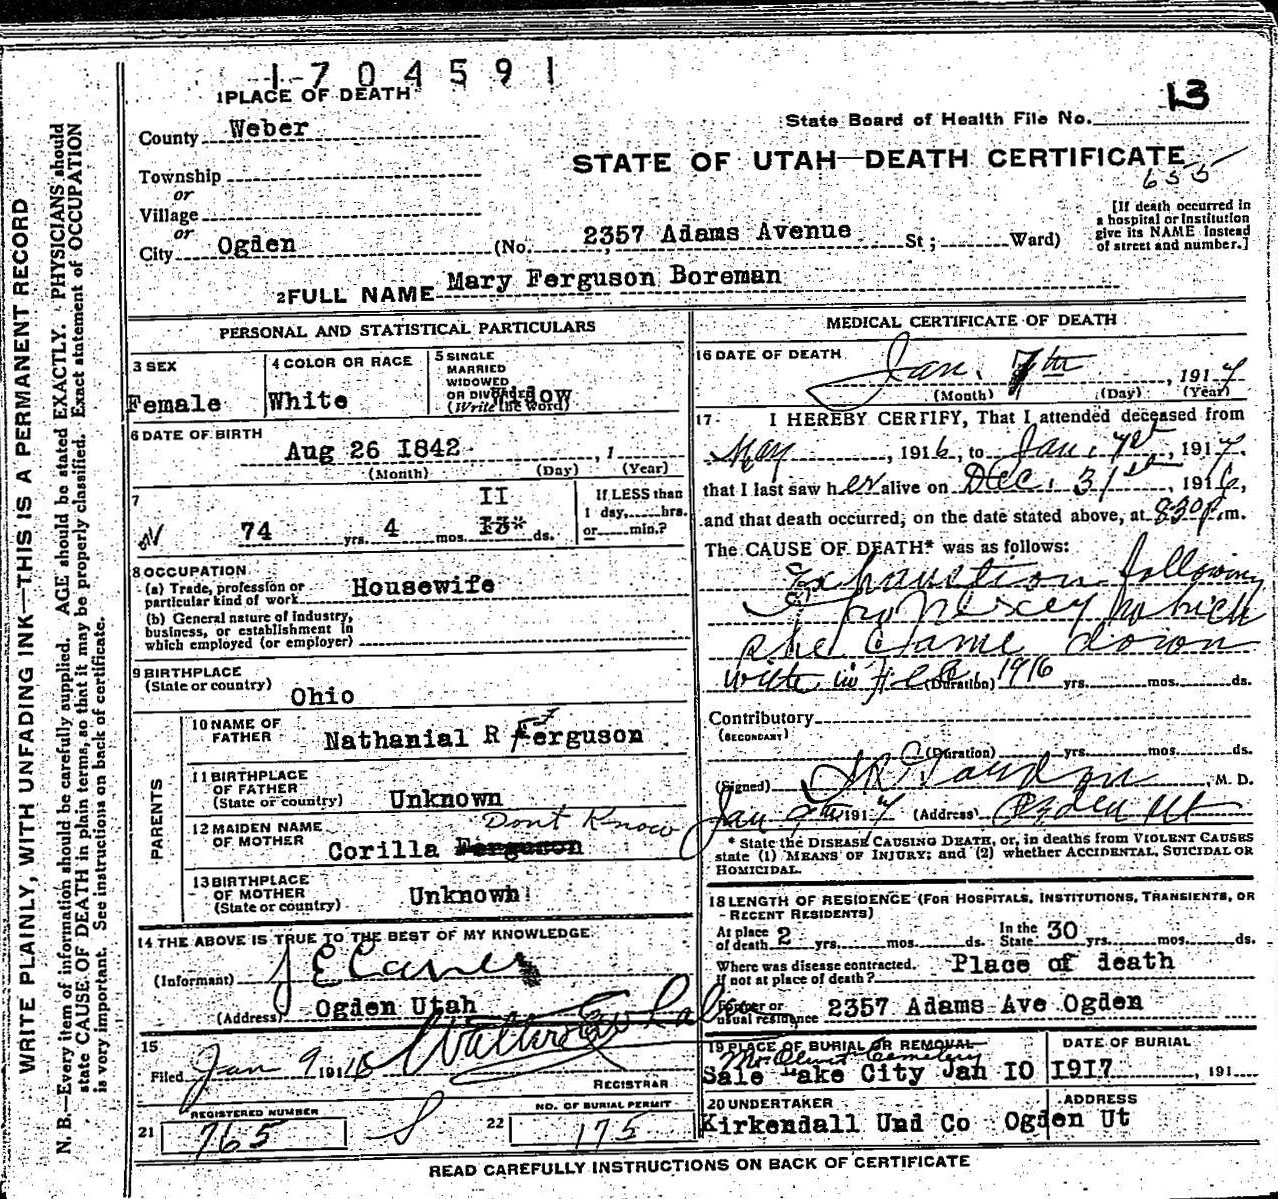 1704591
1 PLACE OF DEATH
13
State Board of Health File No.
County Weber
STATE OF UTAH—DEATH CERTIFICATE
655
Township
or
Village
or
City Ogden (No. 2357 Adams Avenue St; Ward)
[If death occurred in
a hospital or institution
give its NAME instead
of street and number.]
2 FULL NAME Mary Ferguson Boreman
PERSONAL AND STATISTICAL PARTICULARS
3 SEX
Female
4 COLOR OR RACE
White
5 SINGLE
MARRIED
WIDOWED
OR DIVORCED
(Write the word)
Widow
6 DATE OF BIRTH
Aug 26 1842 , 1
(Month) (Day) (Year)
7
II
74 yrs. 4 mos. 13 ds.
If LESS than
1 day, hrs.
or min.?
8 OCCUPATION
(a) Trade, profession or
particular kind of work Housewife
(b) General nature of industry,
business, or establishment in
which employed (or employer)
9 BIRTHPLACE
(State or country)
Ohio
PARENTS
10 NAME OF
FATHER
Nathanial R Ferguson
11 BIRTHPLACE
OF FATHER
(State or country) Unknown
12 MAIDEN NAME
OF MOTHER
Dont Know
Corilla Ferguson
13 BIRTHPLACE
OF MOTHER
(State or country)
Unknown
14 THE ABOVE IS TRUE TO THE BEST OF MY KNOWLEDGE
(Informant) J E
(Address) Ogden Utah
15
Filed Jan 9 191
Walter
REGISTRAR
REGISTERED NUMBER
21 765
NO. OF BURIAL PERMIT
22 175
MEDICAL CERTIFICATE OF DEATH
16 DATE OF DEATH
Jan. 7th , 1917
(Month) (Day) (Year)
17- I HEREBY CERTIFY, That I attended deceased from
May , 1916, to Jan. , 1917.
that I last saw her alive on Dec. 31st , 1916,
and that death occurred, on the date stated above, at 830 P.m.
The CAUSE OF DEATH* was as follows:
Exhaustion following
which
she came down
with in (Duration) 1916 yrs. mos. ds.
Contributory
(SECONDARY)
(Duration) yrs. mos. ds.
(Signed) , M. D.
Jan 9th 1917 (Address) Ogden Ut
* State the DISEASE CAUSING DEATH, or, in deaths from VIOLENT CAUSES
state (1) MEANS OF INJURY; and (2) whether ACCIDENTAL, SUICIDAL OR
HOMICIDAL.
18 LENGTH OF RESIDENCE (FOR HOSPITALS, INSTITUTIONS, TRANSIENTS, OR
RECENT RESIDENTS)
At place
of death 2 yrs. mos. ds.
In the
State 30 yrs. mos. ds.
Where was disease contracted.
If not at place of death? Place of death
Former or
usual residence 2357 Adams Ave Ogden
19 PLACE OF BURIAL OR REMOVAL
Mt Olivet Cemetery
Sale Lake City Jan 10
DATE OF BURIAL
1917 , 191
20 UNDERTAKER
Kirkendall Und Co
ADDRESS
Ogden Ut
READ CAREFULLY INSTRUCTIONS ON BACK OF CERTIFICATE
WRITE PLAINLY, WITH UNFADING INK—THIS IS A PERMANENT RECORD
N. B.—Every item of information should be carefully supplied. AGE should be stated EXACTLY. PHYSICIANS should
state CAUSE OF DEATH in plain terms, so that it may be properly classified. Exact statement of OCCUPATION
is very important. See instructions on back of certificate.